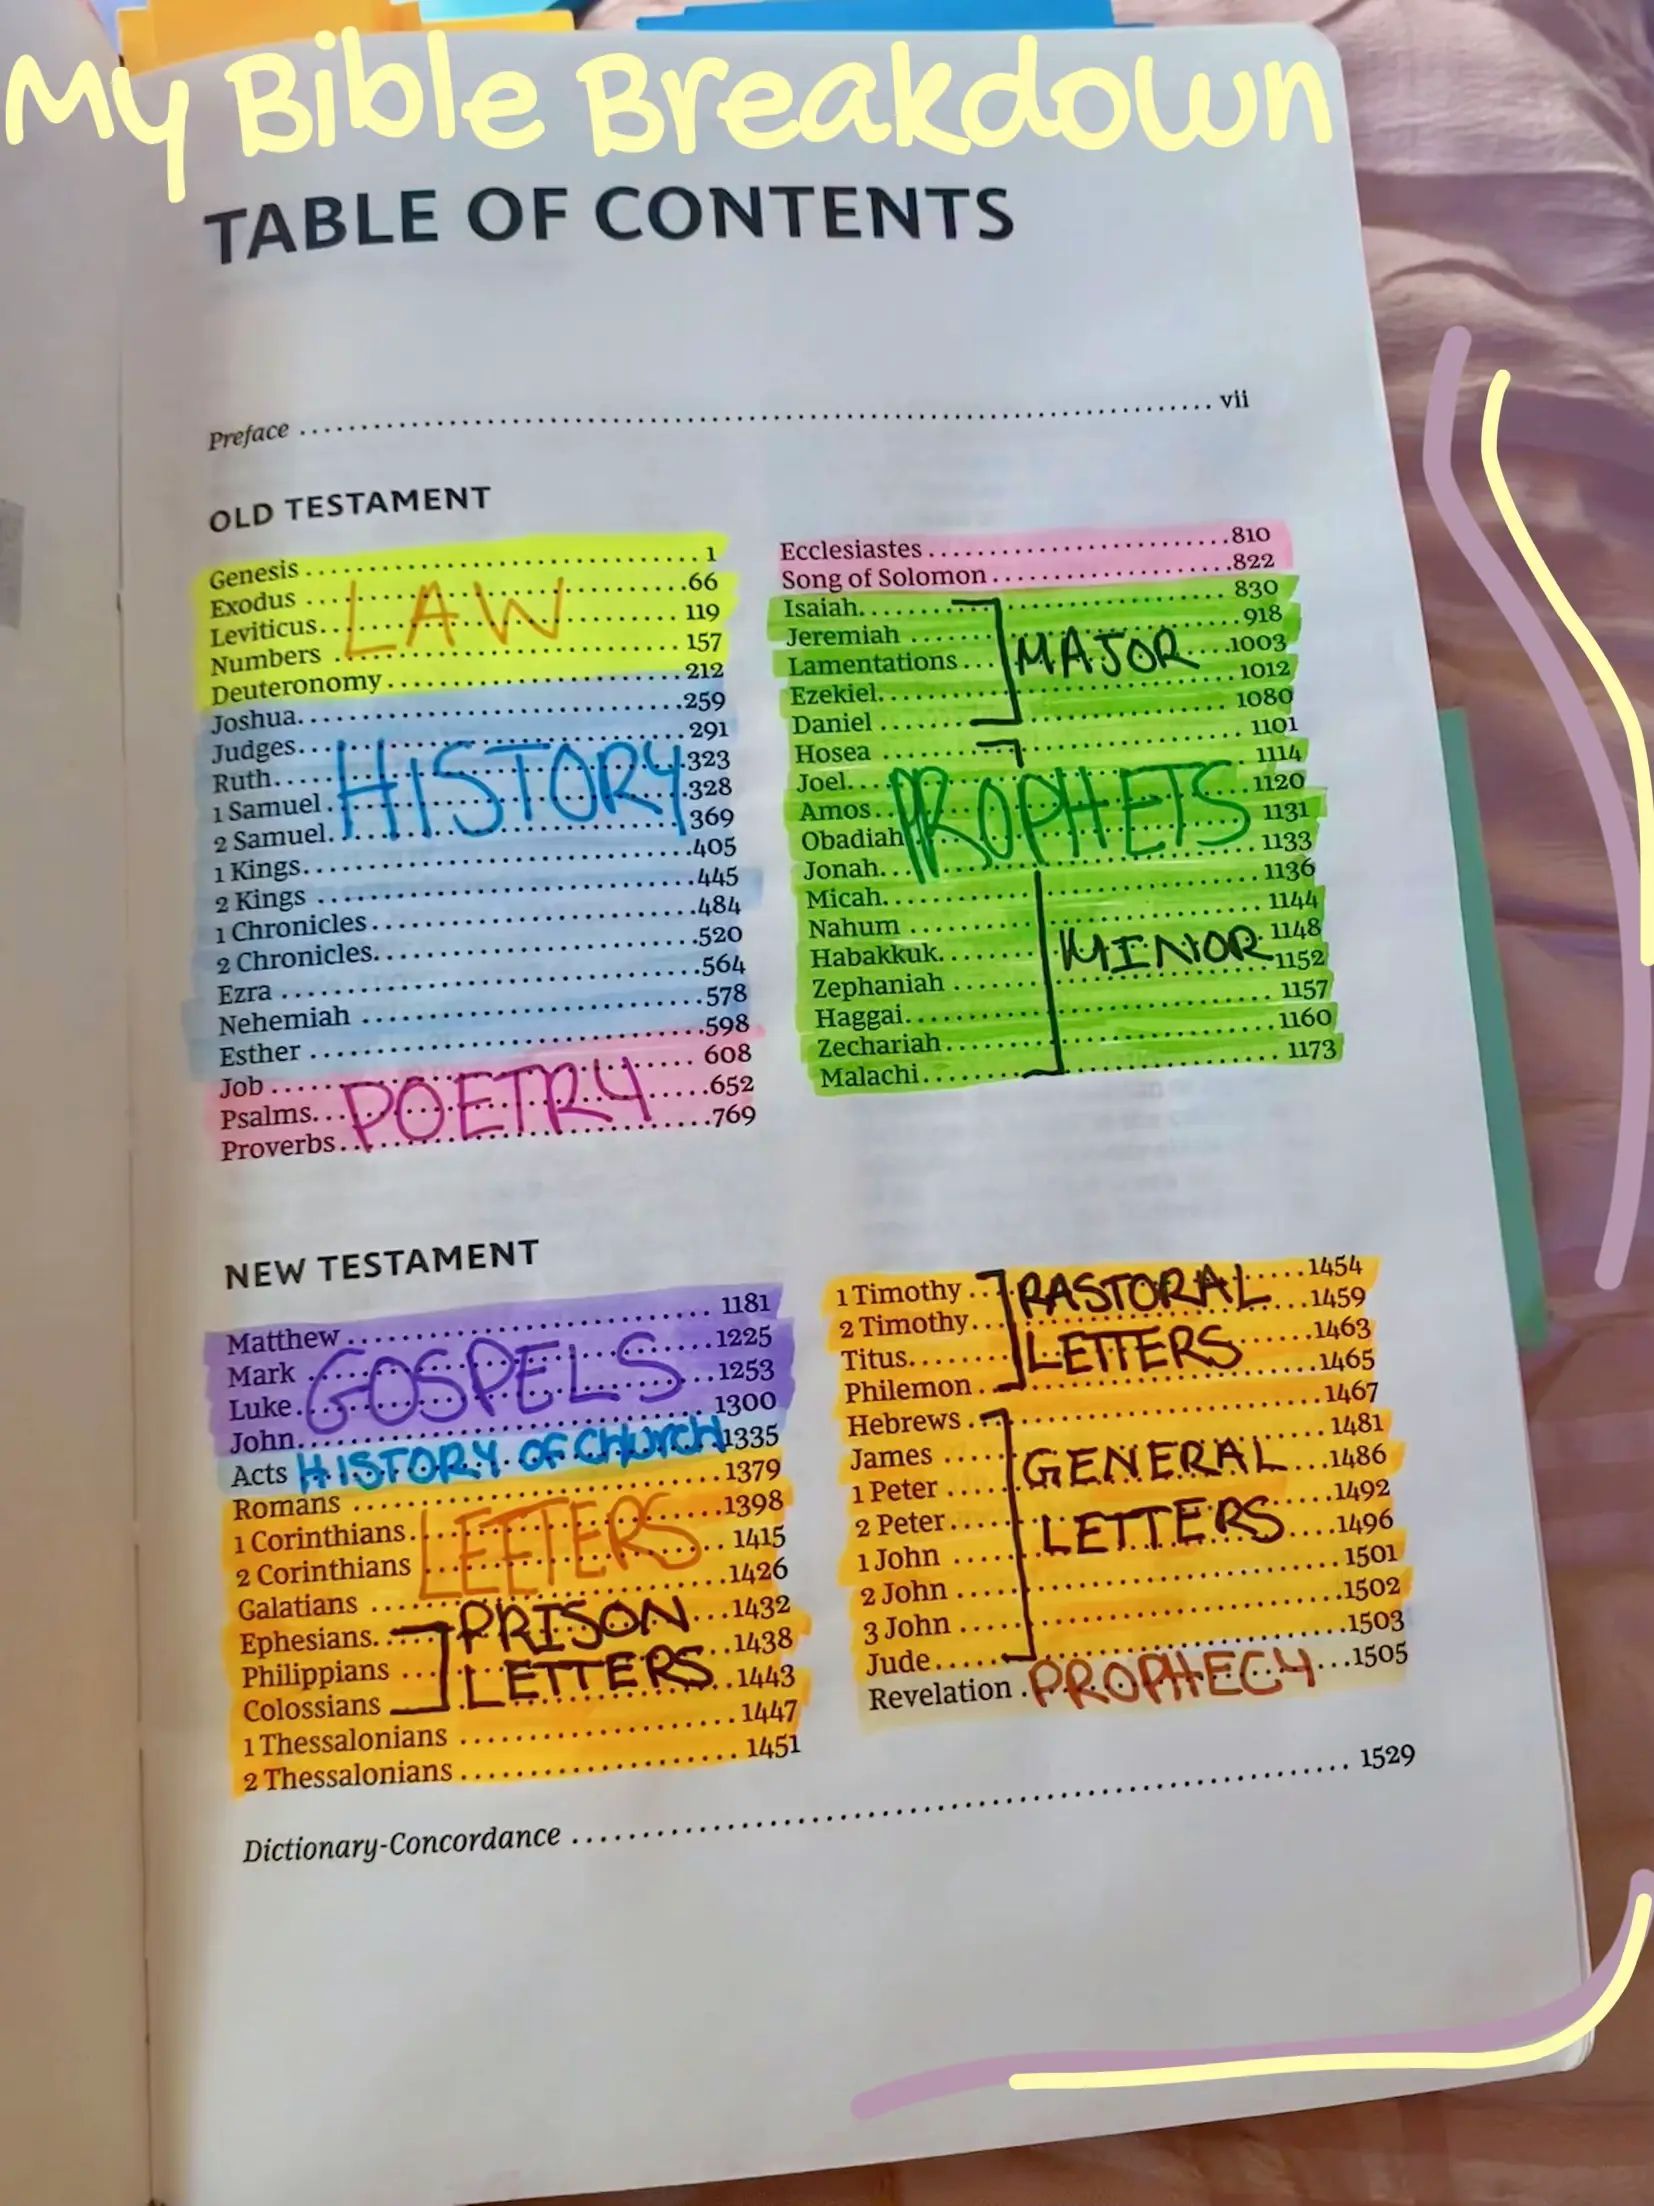 My Bible Breakdown
TABLE OF CONTENTS
Preface ........ vii
OLD TESTAMENT
Genesis ........ 1
Exodus ........ 66
Leviticus ........ 119
Numbers ........ 157
Deuteronomy ........ 212
Joshua ........ 259
Judges ........ 291
Ruth ........ 323
1 Samuel ........ 328
2 Samuel ........ 369
1 Kings ........ 405
2 Kings ........ 445
1 Chronicles ........ 484
2 Chronicles ........ 520
Ezra ........ 564
Nehemiah ........ 578
Esther ........ 598
Job ........ 608
Psalms ........ 652
Proverbs ........ 769
LAW
HISTORY
POETRY
Ecclesiastes ........ 810
Song of Solomon ........ 822
Isaiah ........ 830
Jeremiah ........ 918
Lamentations ........ 1003
Ezekiel ........ 1012
Daniel ........ 1080
Hosea ........ 1101
Joel ........ 1114
Amos ........ 1120
Obadiah ........ 1131
Jonah ........ 1133
Micah ........ 1136
Nahum ........ 1144
Habakkuk ........ 1148
Zephaniah ........ 1152
Haggai ........ 1157
Zechariah ........ 1160
Malachi ........ 1173
MAJOR
PROPHETS
MINOR
NEW TESTAMENT
Matthew ........ 1181
Mark ........ 1225
Luke ........ 1253
John ........ 1300
Acts ........ 1335
Romans ........ 1379
1 Corinthians ........ 1398
2 Corinthians ........ 1415
Galatians ........ 1426
Ephesians ........ 1432
Philippians ........ 1438
Colossians ........ 1443
1 Thessalonians ........ 1447
2 Thessalonians ........ 1451
GOSPELS
HISTORY OF CHURCH
LETTERS
PRISON
LETTERS
1 Timothy ........ 1454
2 Timothy ........ 1459
Titus ........ 1463
Philemon ........ 1465
Hebrews ........ 1467
James ........ 1481
1 Peter ........ 1486
2 Peter ........ 1492
1 John ........ 1496
2 John ........ 1501
3 John ........ 1502
Jude ........ 1503
Revelation ........ 1505
PASTORAL
LETTERS
GENERAL
LETTERS
PROPHECY
Dictionary-Concordance ........ 1529